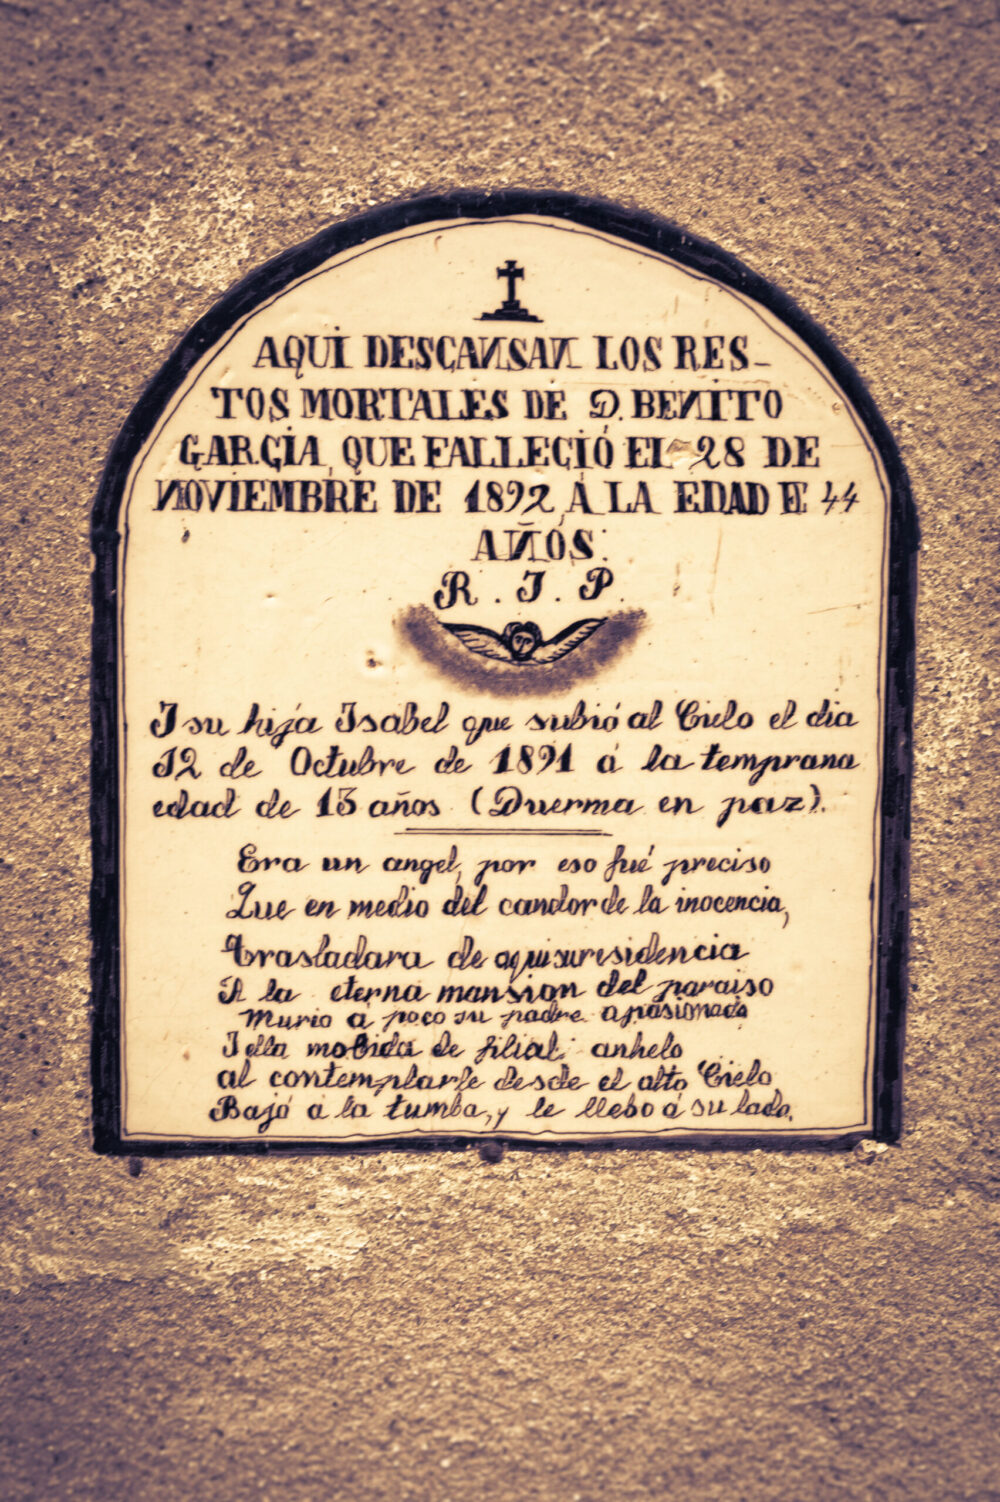 AQUI DESCANSAN LOS RES-
TOS MORTALES DE D. BENITO
GARCIA, QUE FALLECIÓ EL 28 DE
NOVIEMBRE DE 1892, Á LA EDAD DE 44
AÑOS.
R. I. P.
I su hija Isabel que subió al Cielo el dia
12 de Octubre de 1891 á la temprana
edad de 13 años (Duerma en paz).
Era un angel, por eso fué preciso
Que en medio del candor de la inocencia,
Trasladara de aqui su residencia
A la eterna mansion del paraiso
Murio á poco su padre apasionado
I ella mobida de filial anhelo
al contemplarle desde el alto Cielo
Bajó á la tumba, y le llebo á su lado.